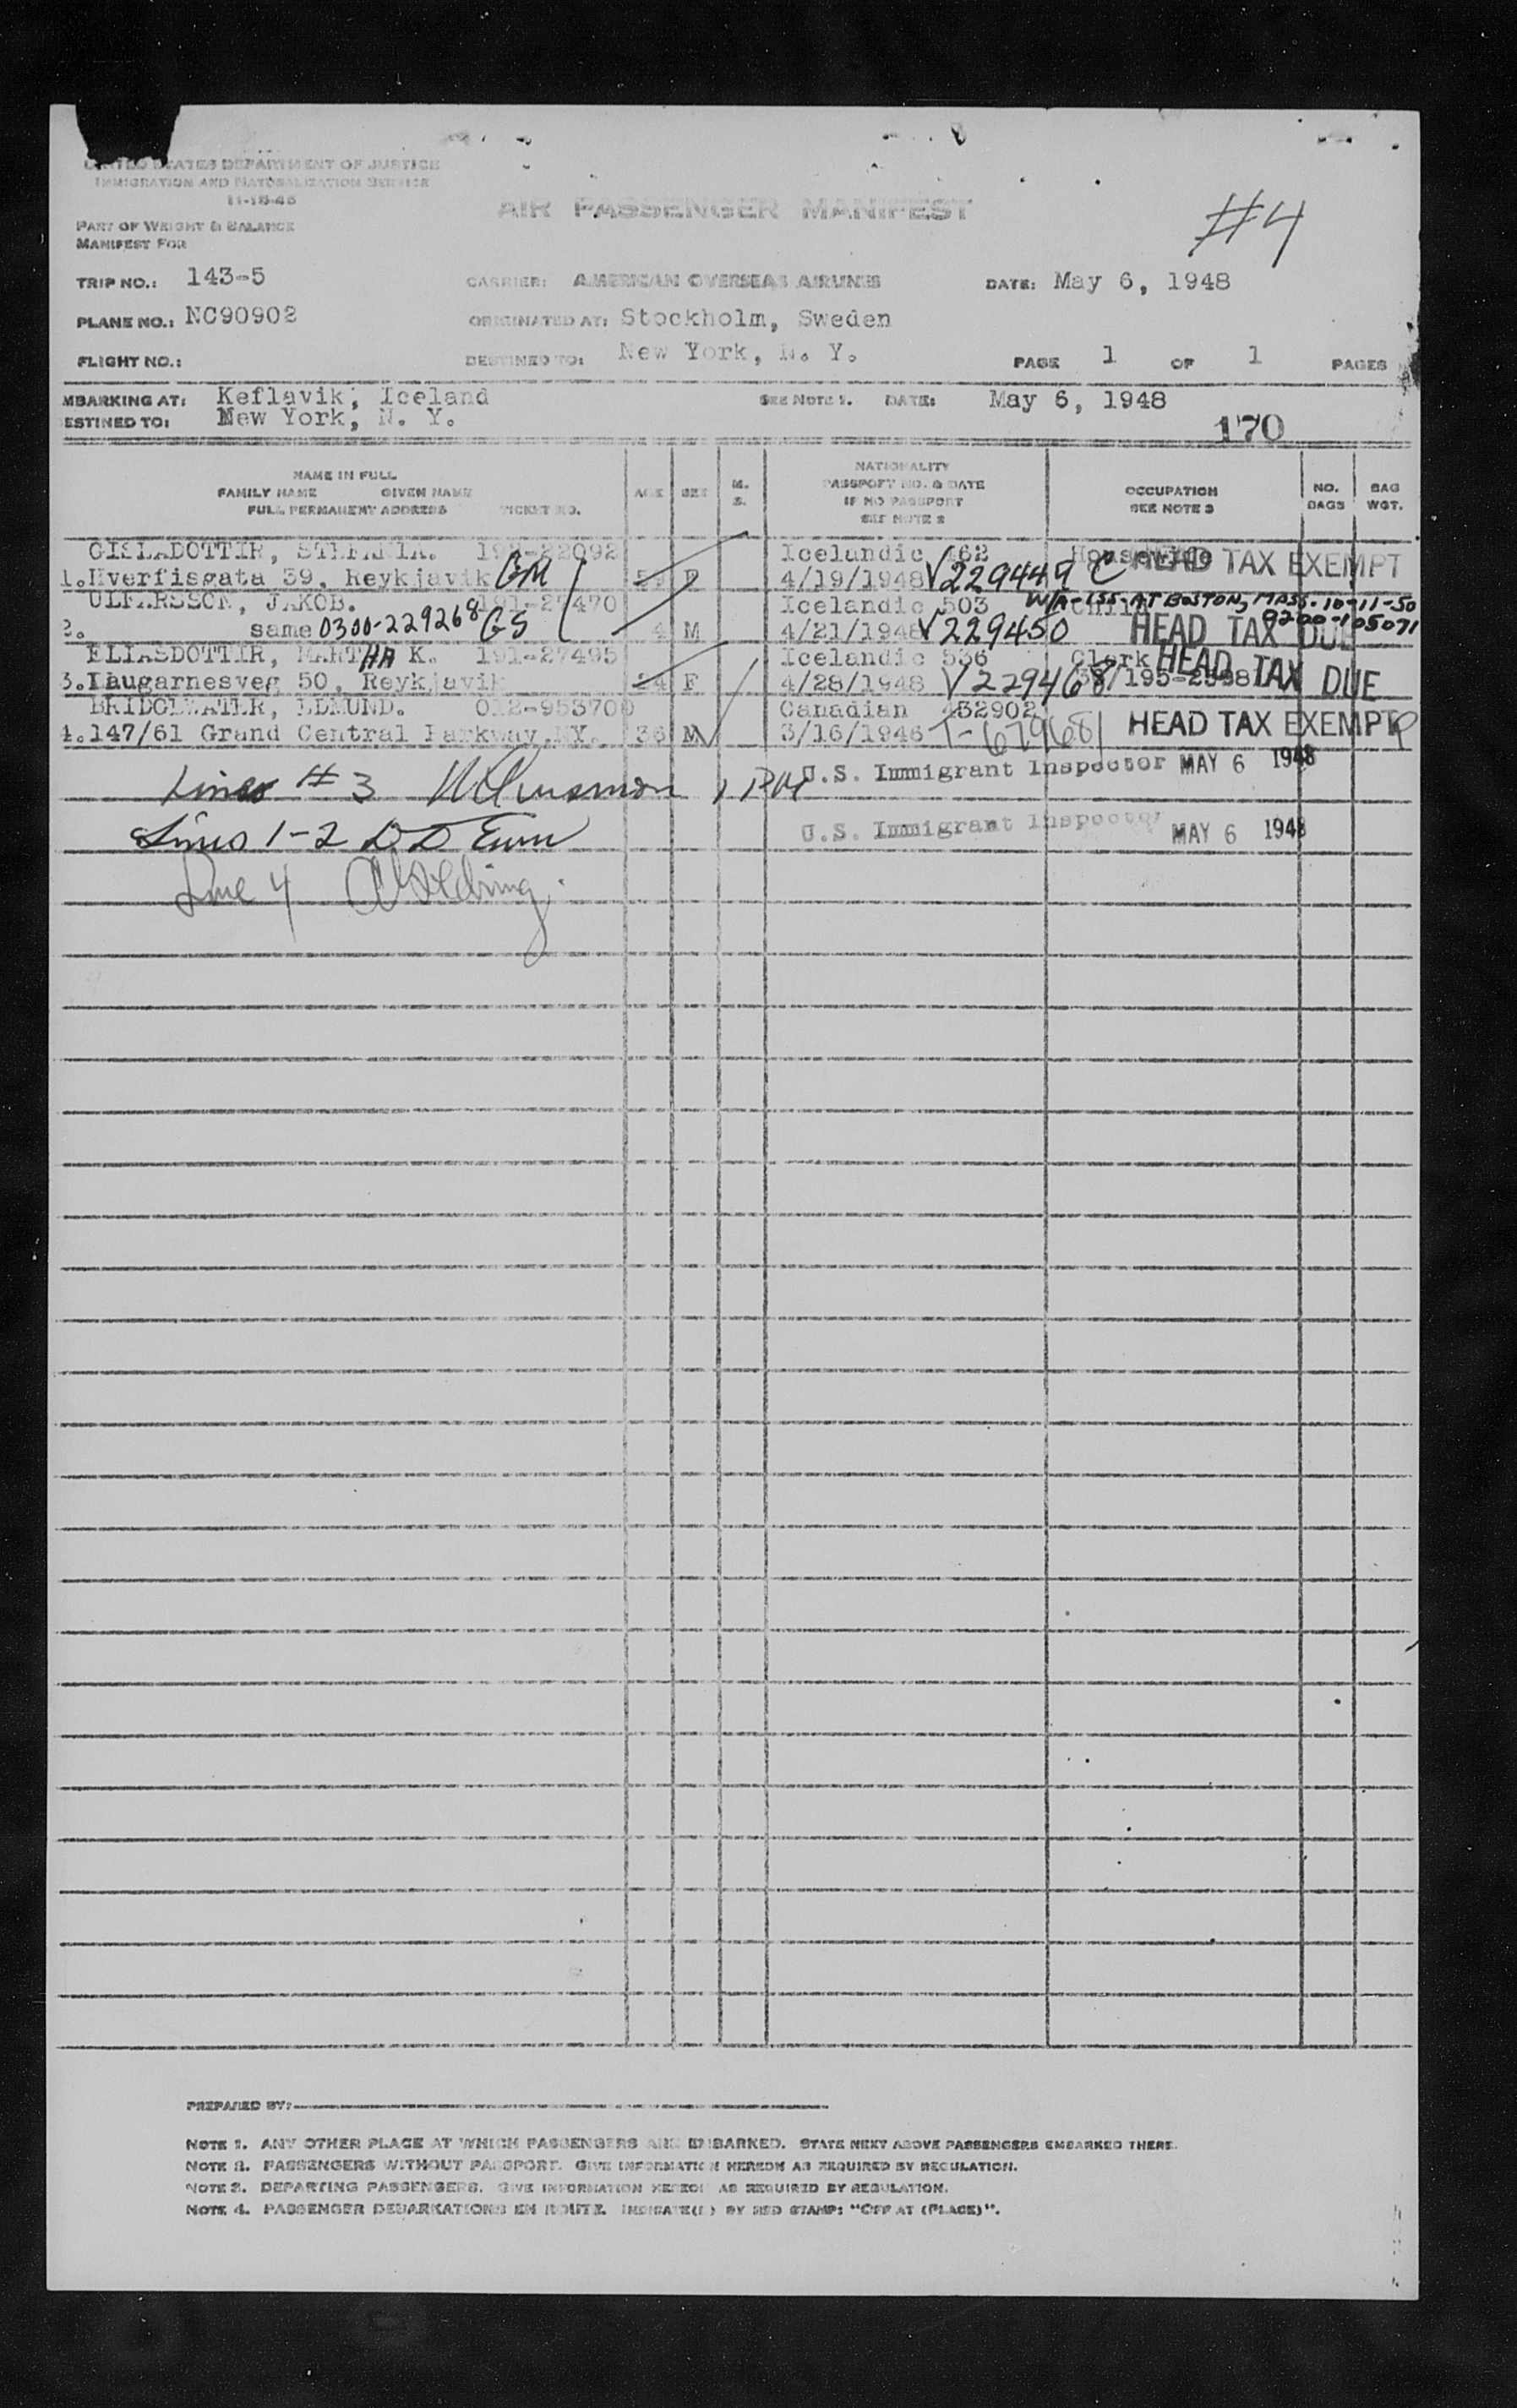 UNITED STATES DEPARTMENT OF JUSTICE
IMMIGRATION AND NATURALIZATION SERVICE
11-18-46
AIR PASSENGER MANIFEST
#4
PART OF WEIGHT & BALANCE
MANIFEST FOR
TRIP NO.: 143-5 CARRIER: AMERICAN OVERSEAS AIRLINES DATE: May 6, 1948
PLANE NO.: NC90902 ORIGINATED AT: Stockholm, Sweden
FLIGHT NO.: DESTINED TO: New York, N. Y. PAGE 1 OF 1 PAGES
MBARKING AT: Keflavik, Iceland SEE NOTE 1. DATE: May 6, 1948
ESTINED TO: New York, N. Y.
170
NAME IN FULL
FAMILY NAME GIVEN NAME
FULL PERMANENT ADDRESS TICKET NO.
AGE SEX M. S.
NATIONALITY
PASSPORT NO. & DATE
IF NO PASSPORT
SEE NOTE 2
OCCUPATION
SEE NOTE 3
NO. BAGS
BAG WGT.
GISLADOTTIR, STEFANIA. 192-22092 Icelandic 462 Housewife HEAD TAX EXEMPT
1. Hverfisgata 39, Reykjavik GM F 4/19/1948 V229449 C
ULFARSSON, JAKOB. 191-27470 Icelandic 503 Child W/A-155-AT BOSTON, MASS. 10-11-50
2. same 0300-229268 GS 4 M 4/21/1948 V229450 HEAD TAX DUE 0200-105071
ELIASDOTTIR, MARTHA K. 191-27495 Icelandic 536 Clerk HEAD TAX DUE
3. Laugarnesveg 50, Reykjavik 24 F 4/28/1948 V229468
BRIDGEWATER, EDMUND. 012-953700 Canadian 432902
4. 147/61 Grand Central Parkway, NY. 36 M 3/16/1946 T-679681 HEAD TAX EXEMPT
Lines #3 U.S. Immigrant Inspector MAY 6 1948
Lines 1-2 U.S. Immigrant Inspector MAY 6 1948
Line 4
PREPARED BY:
NOTE 1. ANY OTHER PLACE AT WHICH PASSENGERS ARE EMBARKED. STATE NEXT ABOVE PASSENGERS EMBARKED THERE.
NOTE 2. PASSENGERS WITHOUT PASSPORT. GIVE INFORMATION HEREON AS REQUIRED BY REGULATION.
NOTE 3. DEPARTING PASSENGERS. GIVE INFORMATION HEREON AS REQUIRED BY REGULATION.
NOTE 4. PASSENGER DEBARKATIONS EN ROUTE. INDICATE( ) BY RED STAMP: "OFF AT (PLACE)".